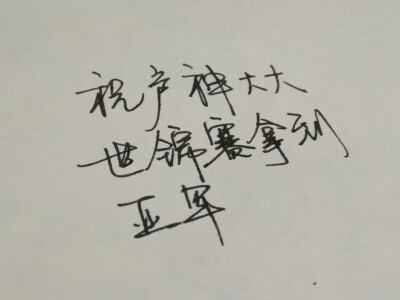 祝卢神大大
世锦赛拿到
亚军